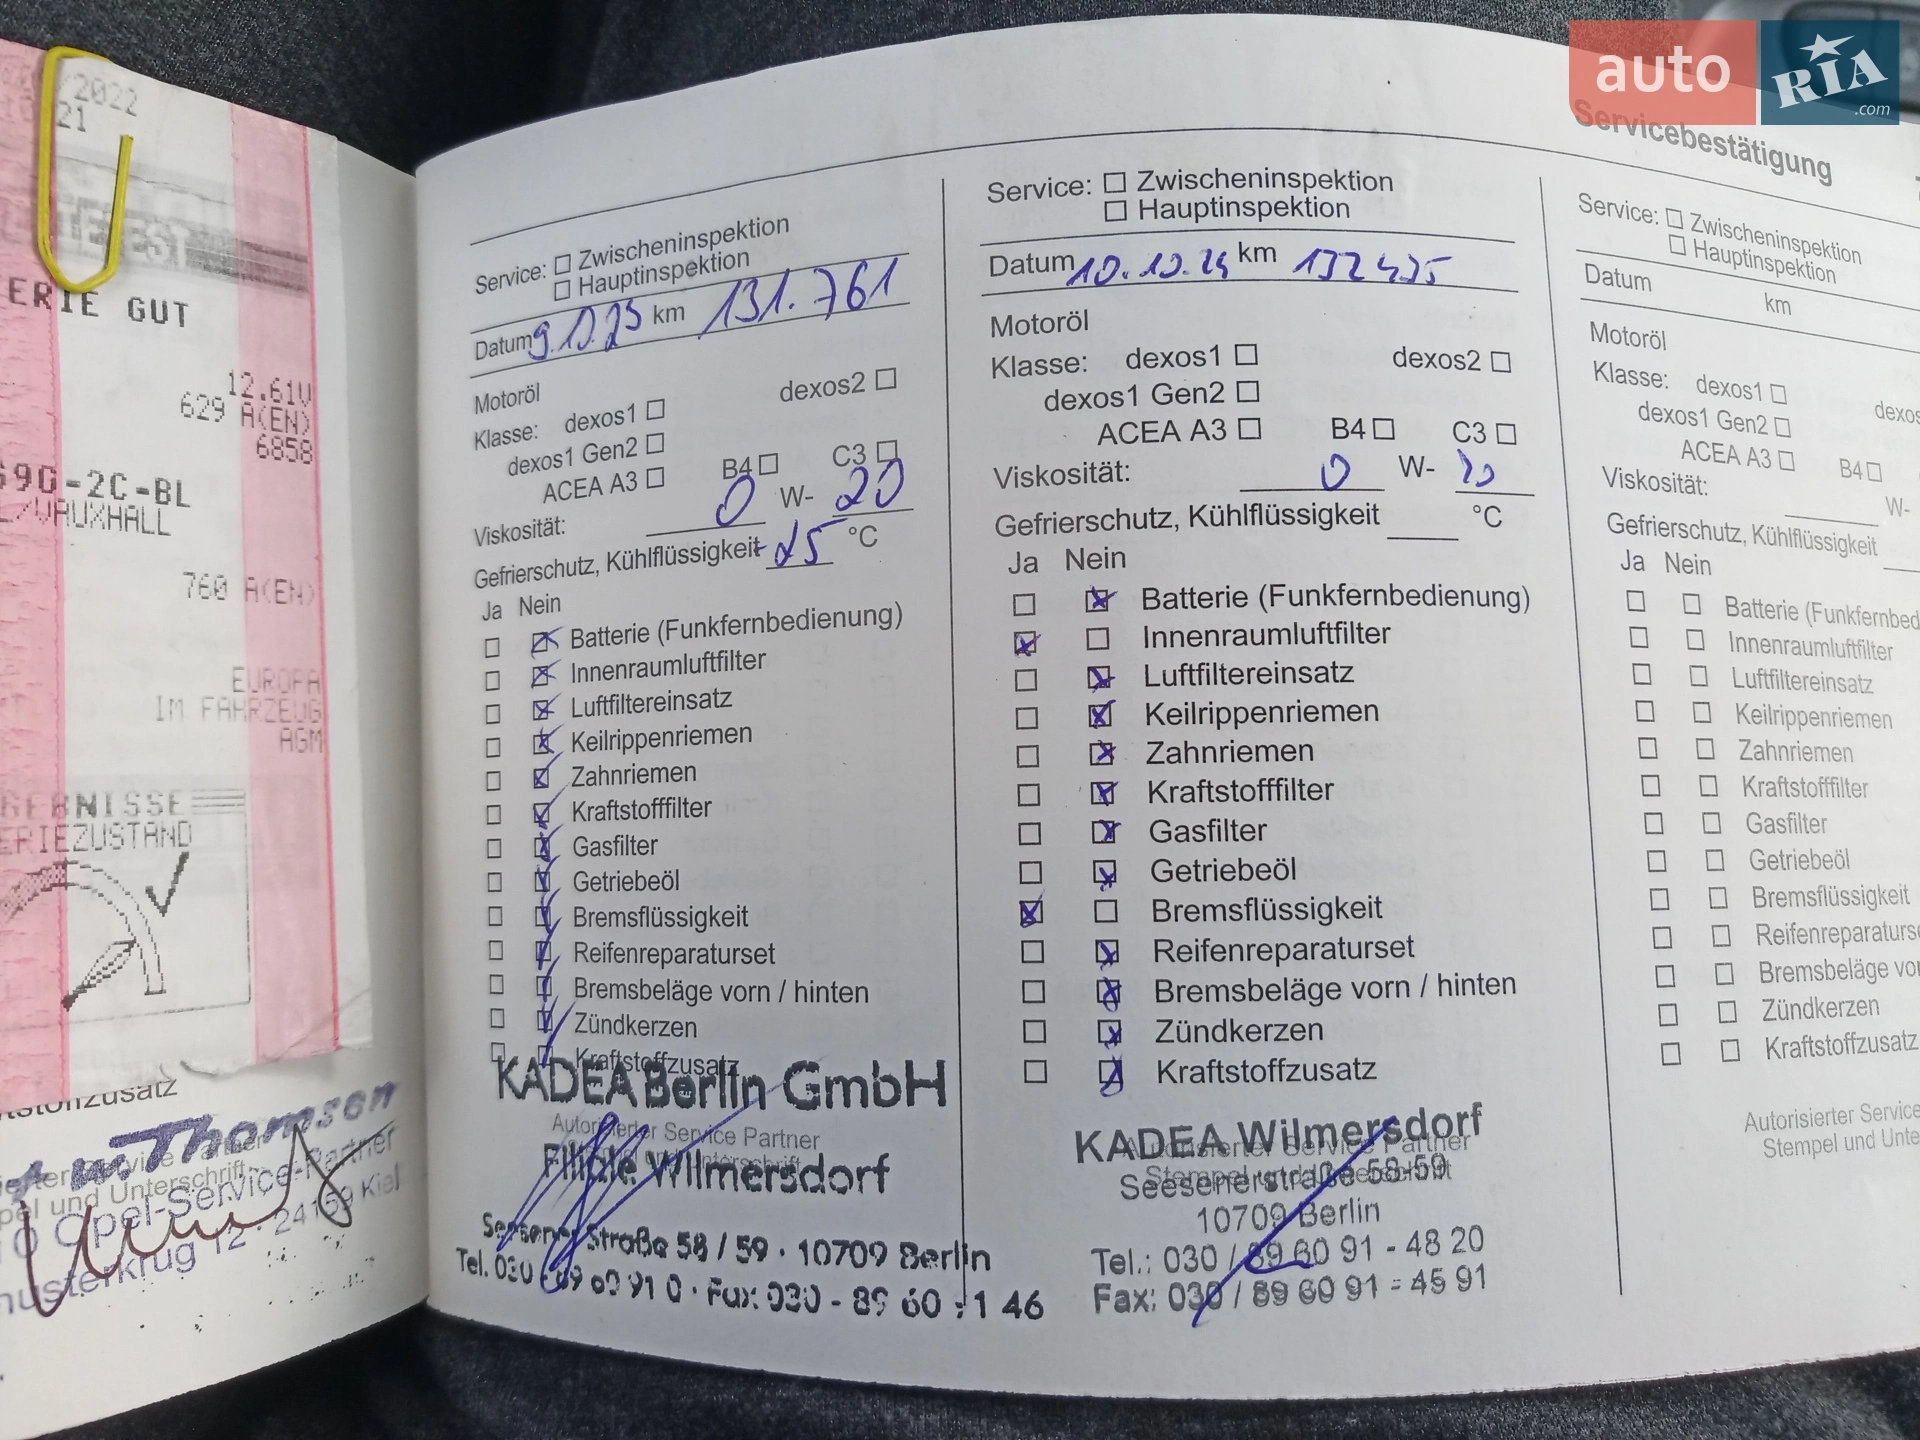 auto RIA .com
/2022
21
TEST
ERIE GUT
12.61V
629 A(EN)
6858
69G-2C-BL
L/VAUXHALL
760 A(EN)
EUROPA
IM FAHRZEUG
AGM
GEBNISSE
ERIEZUSTAND
stoffzusatz
Thomsen
Opel-Service-Partner
pel und Unterschrift
musterkrug 12 · 24159 Kiel
Service: Zwischeninspektion
Hauptinspektion
Datum 9.10.23 km 131.761
Motoröl
Klasse: dexos1 dexos2
dexos1 Gen2
ACEA A3 B4 C3
Viskosität: 0 W- 20
Gefrierschutz, Kühlflüssigkeit -25 °C
Ja Nein
Batterie (Funkfernbedienung)
Innenraumluftfilter
Luftfiltereinsatz
Keilrippenriemen
Zahnriemen
Kraftstofffilter
Gasfilter
Getriebeöl
Bremsflüssigkeit
Reifenreparaturset
Bremsbeläge vorn / hinten
Zündkerzen
Kraftstoffzusatz
KADEA Berlin GmbH
Autorisierter Service Partner
Filiale Wilmersdorf
Seesener Straße 58 / 59 · 10709 Berlin
Tel. 030 - 89 60 91 0 · Fax: 030 - 89 60 91 46
Servicebestätigung
Service: Zwischeninspektion
Hauptinspektion
Datum 10.10.24 km 132435
Motoröl
Klasse: dexos1 dexos2
dexos1 Gen2
ACEA A3 B4 C3
Viskosität: 0 W- 20
Gefrierschutz, Kühlflüssigkeit °C
Ja Nein
Batterie (Funkfernbedienung)
Innenraumluftfilter
Luftfiltereinsatz
Keilrippenriemen
Zahnriemen
Kraftstofffilter
Gasfilter
Getriebeöl
Bremsflüssigkeit
Reifenreparaturset
Bremsbeläge vorn / hinten
Zündkerzen
Kraftstoffzusatz
KADEA Wilmersdorf
Autorisierter Service Partner
Seesenerstraße 58-59
10709 Berlin
Tel.: 030 / 89 60 91 - 48 20
Fax: 030 / 89 60 91 - 45 91
Service: Zwischeninspektion
Hauptinspektion
Datum km
Motoröl
Klasse: dexos1 dexos
dexos1 Gen2
ACEA A3 B4
Viskosität: W-
Gefrierschutz, Kühlflüssigkeit
Ja Nein
Batterie (Funkfernbed
Innenraumluftfilter
Luftfiltereinsatz
Keilrippenriemen
Zahnriemen
Kraftstofffilter
Gasfilter
Getriebeöl
Bremsflüssigkeit
Reifenreparaturse
Bremsbeläge vo
Zündkerzen
Kraftstoffzusatz
Autorisierter Service
Stempel und Unte